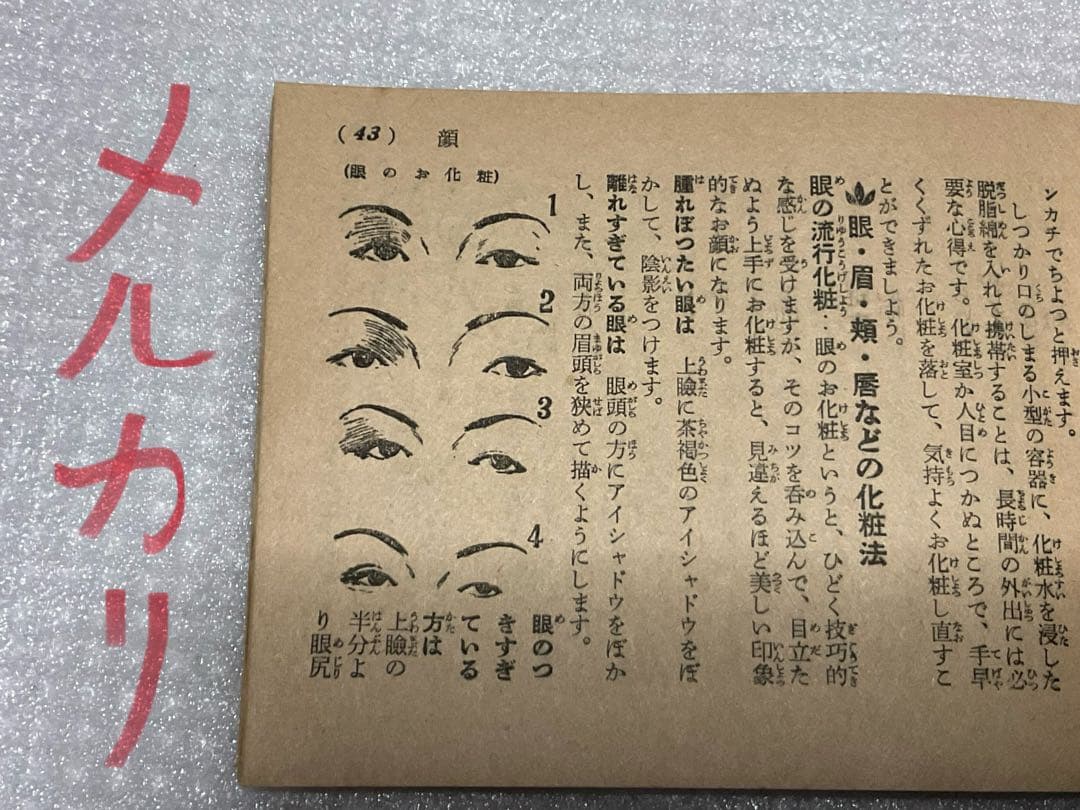 メルカリ
(43) 顔
(眼のお化粧)
ンカチでちよつと押えます。
しつかり口のしまる小型の容器に、化粧水を浸した
脱脂綿を入れて携帯することは、長時間の外出には必
要な心得です。化粧室か人目につかぬところで、手早
くくずれたお化粧を落して、気持よくお化粧し直すこ
とができましよう。
眼・眉・頬・唇などの化粧法
眼の流行化粧・眼のお化粧というと、ひどく技巧的
な感じを受けますが、そのコツを呑み込んで、目立た
ぬよう上手にお化粧すると、見違えるほど美しい印象
的なお顔になります。
腫れぼつたい眼は 上瞼に茶褐色のアイシャドウをぼ
かして、陰影をつけます。
離れすぎている眼は 眼頭の方にアイシャドウをぼか
し、また、両方の眉頭を狭めて描くようにします。
1
2
3
4
眼のつ
きすぎ
ている
方は
上瞼の
半分よ
り眼尻